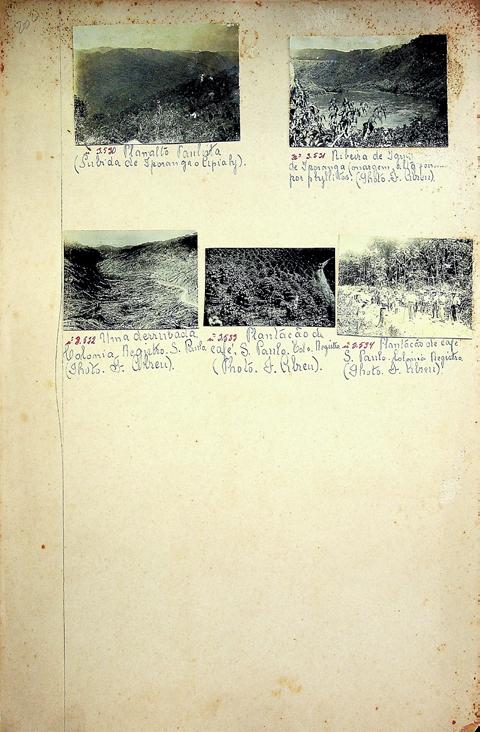 203
nº 3.530 Planalto Paulista
(Subida de Iporanga a Apiahy).
nº 3.531 Ribeira de
de Iporanga (margem
por phyllitos. (Photo. F. Abreu).
nº 3.532 Uma derrubada
Colonia Registro. S. Paulo
(Photo. F. Abreu).
nº 3533 Plantação de
café. S. Paulo. Colo. Registro
(Photo. F. Abreu).
nº 3.534 Plantação de café
S. Paulo. Colonia Registro
(Photo. F. Abreu).